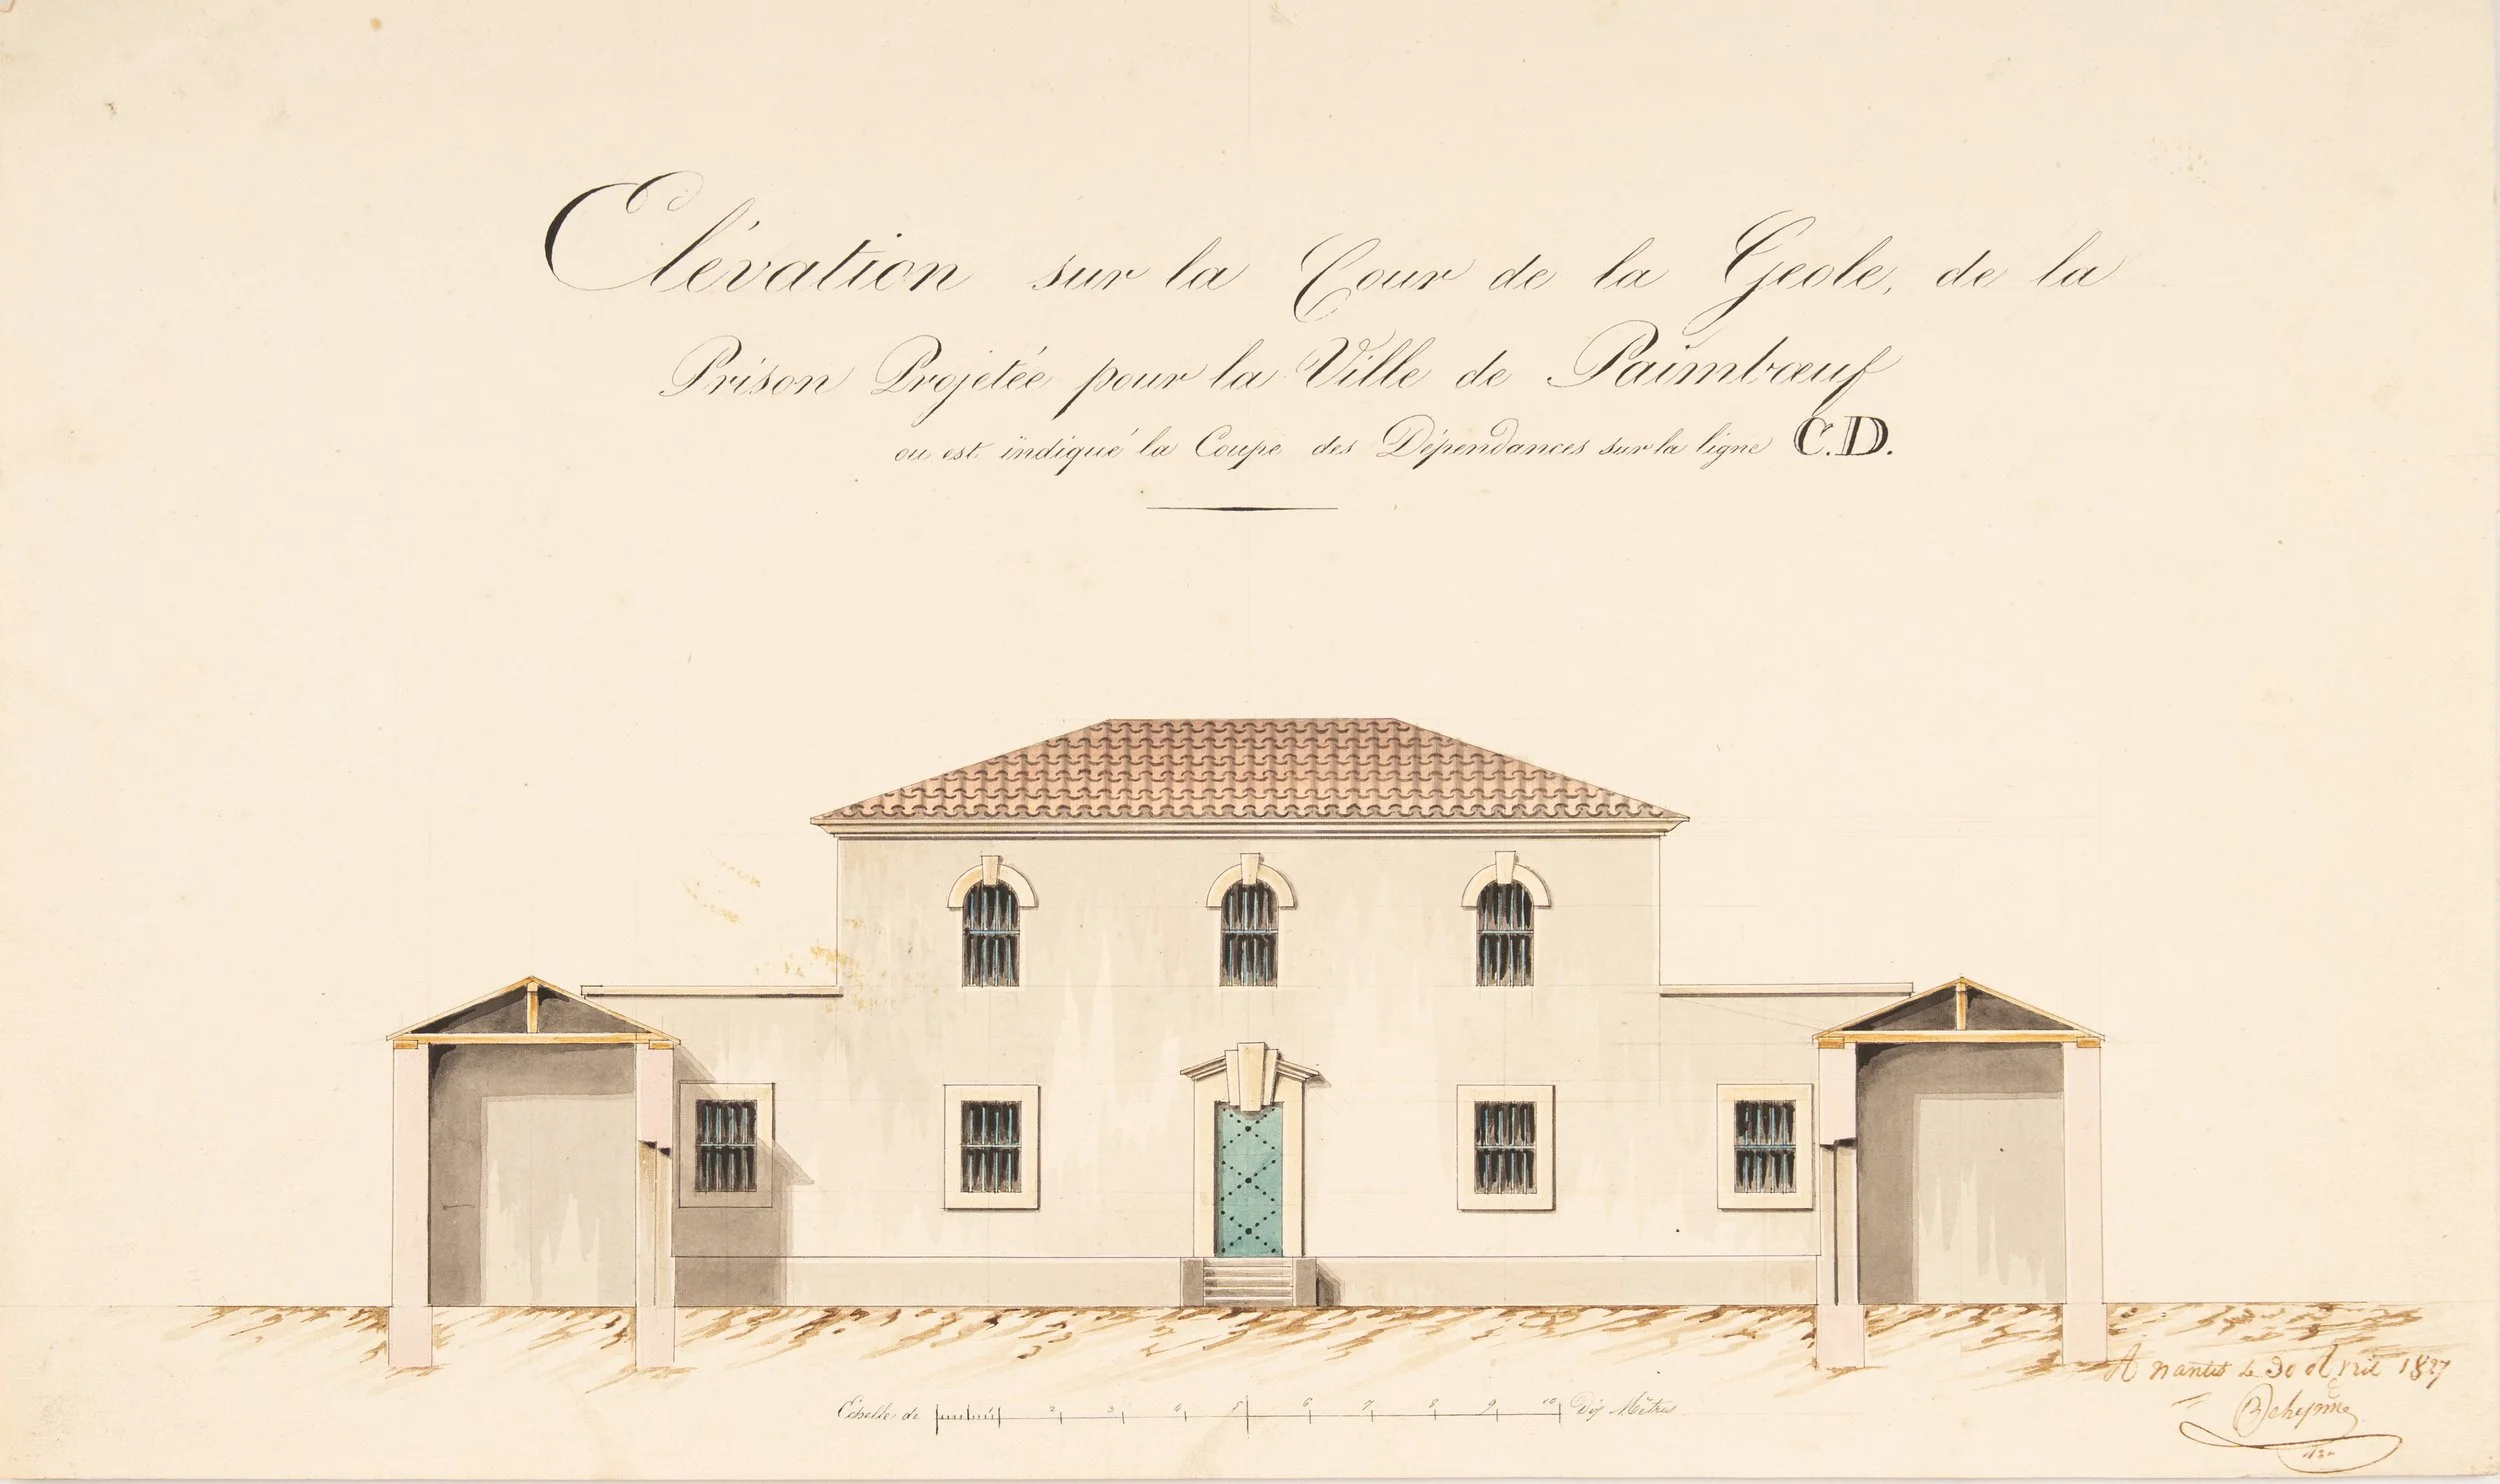 Elévation sur la Cour de la Geole, de la
Prison Projetée pour la Ville de Paimbœuf
ou est indiqué la Coupe des Dépendances sur la ligne C.D.
Echelle de 1 2 3 4 5 6 7 8 9 10 Dix Mètres
A nantes Le 30 Avril 1827